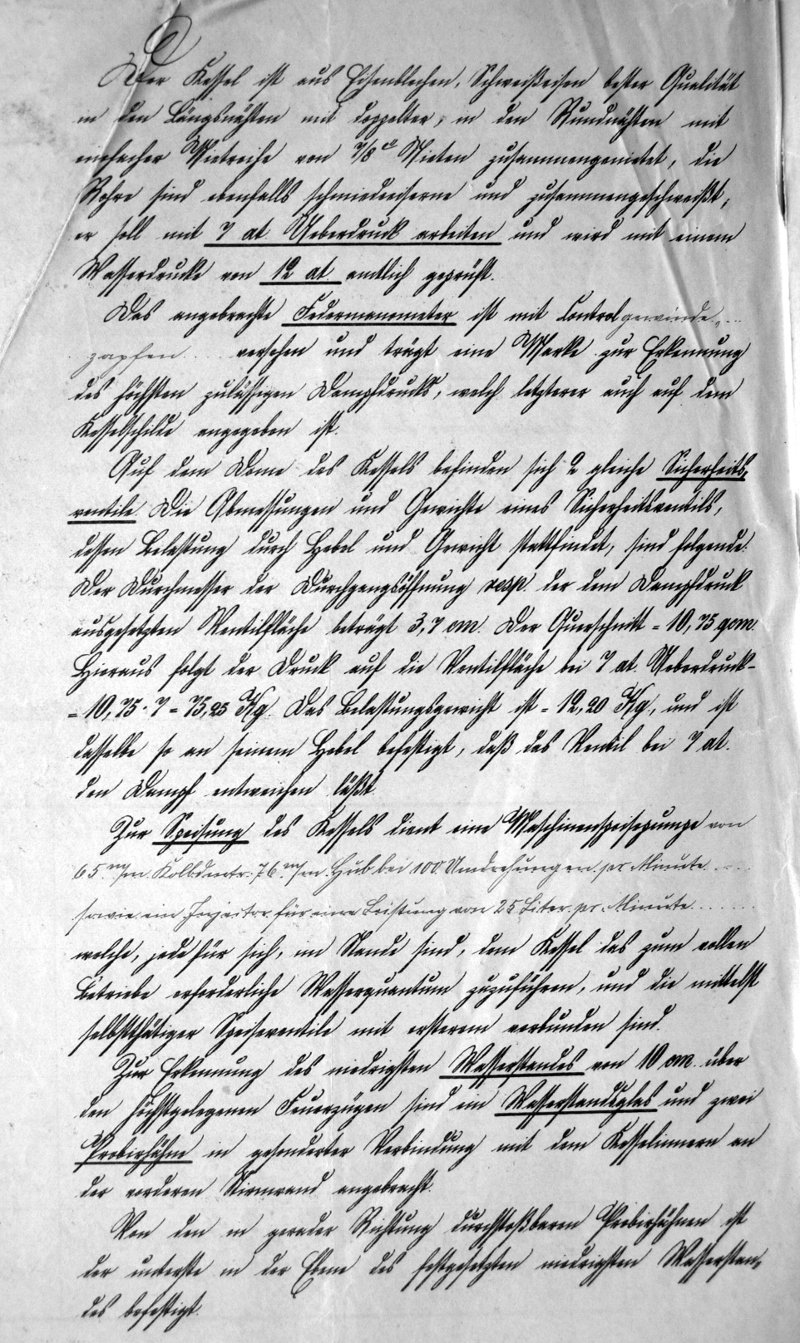 Der Kessel ist aus Eisenblechen, Schweißeisen bester Qualität
in den Längsnähten mit doppelter, in den Rundnähten mit
einfacher Nietreihe von 7/8" Nieten zusammengenietet, die
Rohre sind ebenfalls schmiedeeiserne und zusammengeschweißt,
er soll mit 7 at Ueberdruck arbeiten und wird mit einem
Wasserdrucke von 12 at amtlich geprüft.
Das angebrachte Federmanometer ist mit Controlgewinde-
zapfen versehen und trägt eine Marke zur Erkennung
des höchsten zulässigen Dampfdrucks, welch letzterer auch auf dem
Kesselschilde angegeben ist.
Auf dem Dome des Kessels befinden sich 2 gleiche Sicherheits-
ventile. Die Abmessungen und Gewichte eines Sicherheitsventils,
dessen Belastung durch Hebel und Gewicht stattfindet, sind folgende:
Der Durchmesser der Durchgangsöffnung resp. der dem Dampfdruck
ausgesetzten Ventilfläche beträgt 3,7 cm. Der Querschnitt = 10,75 qcm.
Hieraus folgt der Druck auf die Ventilfläche bei 7 at Ueberdruck-
= 10,75 · 7 = 75,25 Kg. Das Belastungsgewicht ist = 12,20 Kg, und ist
dasselbe so an seinem Hebel befestigt, daß das Ventil bei 7 at.
den Dampf entweichen läßt.
Zur Speisung des Kessels dient eine Maschinenspeisepumpe von
65 m/m Kolbdmtr. 76 m/m Hub bei 100 Umdrehungen pr. Minute
sowie ein Injector für eine Leistung von 25 Liter pr. Minute
welche, jede für sich, im Stande sind, dem Kessel das zum vollen
Betriebe erforderliche Wasserquantum zuzuführen, und die mittelst
selbstthätiger Speiseventile mit ersterem verbunden sind.
Zur Erkennung des niedrigsten Wasserstandes von 10 cm. über
den höchstgelegenen Feuerzügen sind ein Wasserstandsglas und zwei
Probirhähne in gesonderter Verbindung mit dem Kesselinnern an
der vorderen Stirnwand angebracht.
Von den in gerader Richtung durchstoßbaren Probirhähnen ist
der unterste in der Ebene des festgesetzten niedrigsten Wasserstan-
des befestigt.